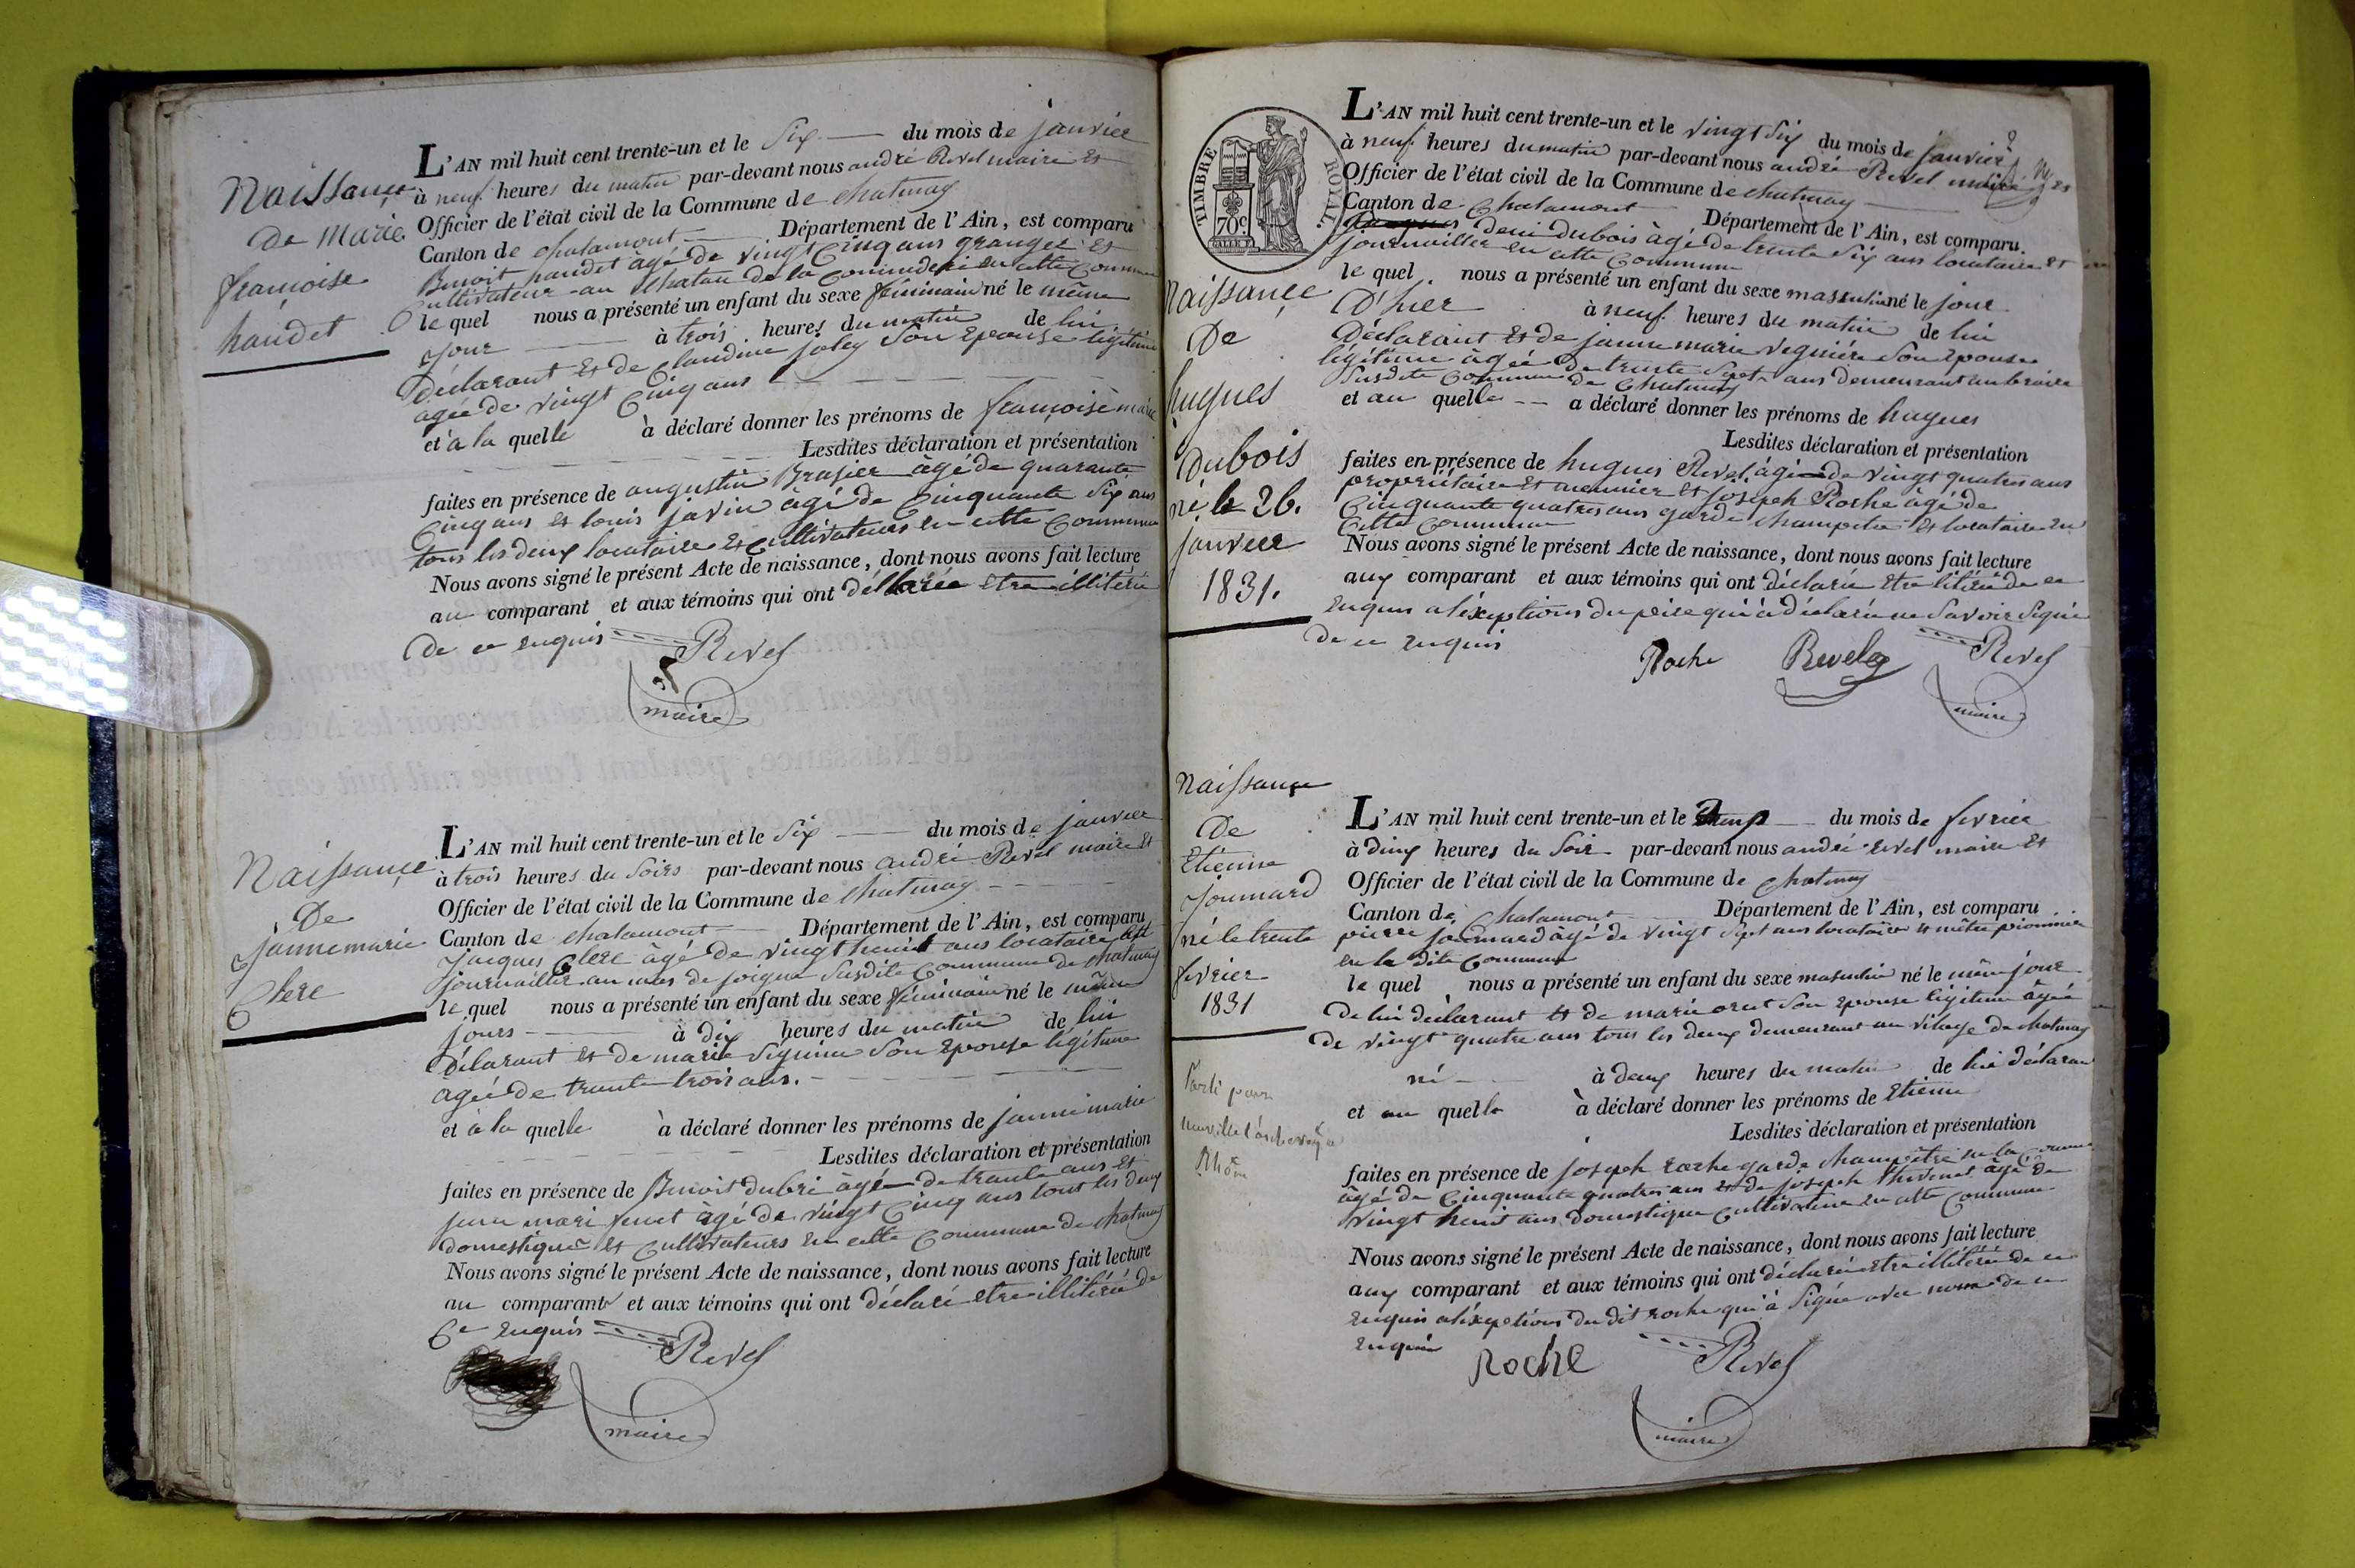 Naissance
De Marie
françoise
haudet
L'AN mil huit cent trente-un et le Six du mois de janvier
à neuf heures du matin par-devant nous andré Revel maire et
Officier de l'état civil de la Commune de chatenay
Canton de chalamont Département de l'Ain, est comparu
Benoit haudet âgé de vingt Cinq ans granger et
Cultivateur au de la en cette Commune
le quel nous a présenté un enfant du sexe féminain né le même
jour à trois heures du matin de lui
Déclarant et de claudine joly Son Epouse légitime
agée de vingt Cinq ans
et à la quelle à déclaré donner les prénoms de françoise marie
Lesdites déclaration et présentation
faites en présence de augustin Brasier âgé de quarante
Cinq ans et louis javin âgé de Cinquante Six ans
tous les deux locataire et Cultivateurs en cette Commune
Nous avons signé le présent Acte de naissance, dont nous avons fait lecture
au comparant et aux témoins qui ont déclarée etre illitéré
De ce enquis Revel
maire
Naissance
De
janne marie
Clere
L'AN mil huit cent trente-un et le Six du mois de janvier
à trois heures du Soirs par-devant nous andré Revel maire et
Officier de l'état civil de la Commune de chatenay
Canton de chalamont Département de l'Ain, est comparu
Jacques Clere âgé de vingt heuit ans locataire et
journaillier au mas de Susdite Commune de chatenay
le quel nous a présenté un enfant du sexe féminain né le même
jours à dix heures du matin de lui
Déclarant et de marie Son Epouse légitime
âgée de trente trois ans.
et à la quelle à déclaré donner les prénoms de janne marie
Lesdites déclaration et présentation
faites en présence de Benoit dubri âgé de trante ans et
mari âgé de vingt Cinq ans tout les deux
domestique et Cultivateurs en cette Commune de chatenay
Nous avons signé le présent Acte de naissance, dont nous avons fait lecture
au comparant et aux témoins qui ont déclaré etre illitéré de
Ce enquis Revel
maire
TIMBRE ROYAL
70c
Naissance
De
hugues
dubois
né le 26.
janvier
1831.
L'AN mil huit cent trente-un et le vingt Six du mois de janvier
à neuf heures du matin par-devant nous andré Revel maire et
Officier de l'état civil de la Commune de chatenay
Canton de Chalamont Département de l'Ain, est comparu
deni dubois âgé de trente Six ans locataire et
journaillier en cette Commune
le quel nous a présenté un enfant du sexe masculin né le jour
D'hier à neuf heures du matin de lui
Déclarant et de janne marie veguiére Son Epouse
légitime âgée de trente Sept ans demeurant
Susdite Commune de Chatenay
et au quelle a déclaré donner les prénoms de hugues
Lesdites déclaration et présentation
faites en présence de hugues Revel âgé de vingt quatres ans
propriétaire et meunier et joseph Roche âgé de
Cinquante quatres ans garde champetre et locataire en
Cette Commune
Nous avons signé le présent Acte de naissance, dont nous avons fait lecture
aux comparant et aux témoins qui ont déclarée etre litéré de ce
Enquis a léxeptions du peire qui à déclarée ne Savoir Signé
De ce enquis
Roche Revel Revel
maire
Naissance
De
Etienne
Joumard
né le trente
fevrier
1831
Parti pour
neuville l'archevêque
Rhône
L'AN mil huit cent trente-un et le du mois de fevrier
à dinq heures du Soir par-devant nous andré revel maire et
Officier de l'état civil de la Commune de Chatenay
Canton de Chalamont Département de l'Ain, est comparu
pierre joumard âgé de vingt Sept ans locataire et mêtre pionnier
en la dite Commune
le quel nous a présenté un enfant du sexe masculin né le même jour
De lui déclarant et de marie Son Epouse légitime âgée
De vingt quatre ans tous les deux demeurant au vilage de chatenay
né à deux heures du matin de lui déclaran
et au quelle à déclaré donner les prénoms de Etienne
Lesdites déclaration et présentation
faites en présence de joseph roche garde champêtre
âgé de Cinquante quatres ans et de joseph thivenet âgé de
vingt heuit ans domestique cultivateur en cette Commune
Nous avons signé le présent Acte de naissance, dont nous avons fait lecture
aux comparant et aux témoins qui ont déclaré etre illitéré de ce
enquis a léxeptions du dit roche qui à Signé avec nous de ce
Enquis
Roche Revel
maire